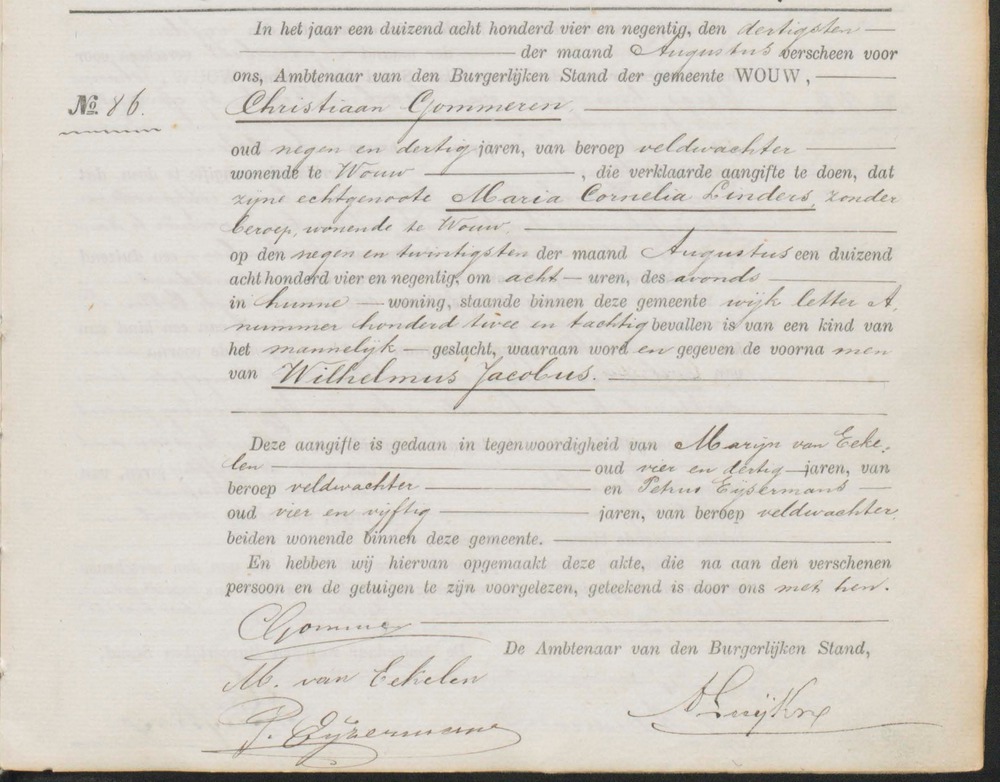 In het jaar een duizend acht honderd vier en negentig, den dertigsten
der maand Augustus verscheen voor
ons, Ambtenaar van den Burgerlijken Stand der gemeente WOUW,
No. 86.
Christiaan Gommeren
oud negen en dertig jaren, van beroep veldwachter
wonende te Wouw, die verklaarde aangifte te doen, dat
zijne echtgenoote Maria Cornelia Linders, zonder
beroep, wonende te Wouw.
op den negen en twintigsten der maand Augustus een duizend
acht honderd vier en negentig, om acht uren, des avonds
in hunne woning, staande binnen deze gemeente wijk letter A,
nummer honderd twee en tachtig bevallen is van een kind van
het mannelijk geslacht, waaraan word en gegeven de voorna men
van Wilhelmus Jacobus.
Deze aangifte is gedaan in tegenwoordigheid van Marijn van Eeke-
len oud vier en dertig jaren, van
beroep veldwachter en Petrus Eijsermans
oud vier en vijftig jaren, van beroep veldwachter,
beiden wonende binnen deze gemeente.
En hebben wij hiervan opgemaakt deze akte, die na aan den verschenen
persoon en de getuigen te zijn voorgelezen, geteekend is door ons met hen.
De Ambtenaar van den Burgerlijken Stand,
M. van Eekelen
P. Eijzermans